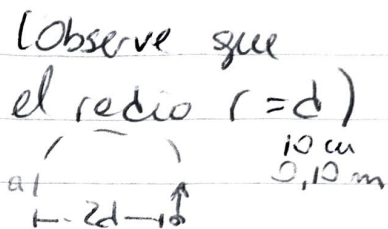 (Observe que
el radio r = d)
10 cm
0,10 m
a
2d
b